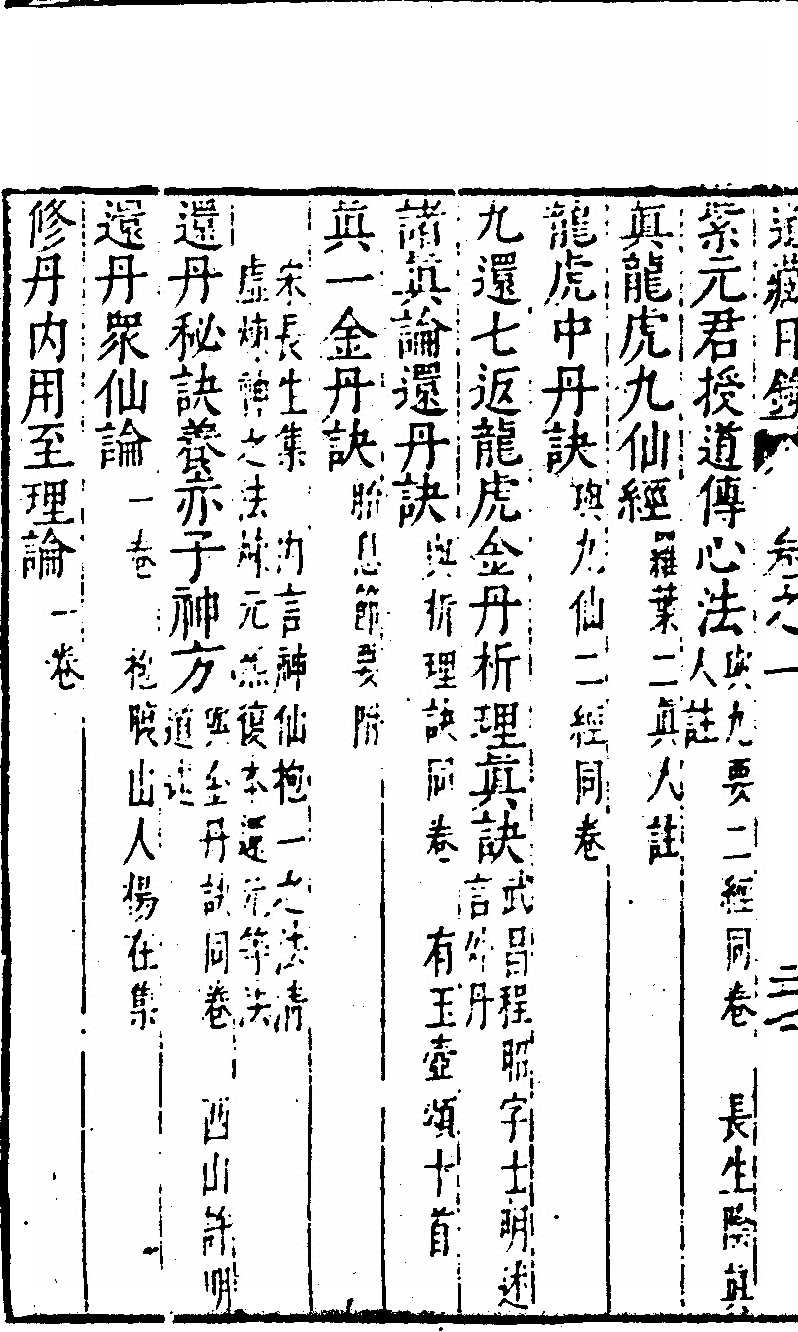 道藏目錄 卷之一
紫元君授道傳心法與九要二經同卷 長生陰真人註
真龍虎九仙經羅葉二真人註
龍虎中丹訣與九仙二經同卷
九還七返龍虎金丹析理真訣武昌程昭字士明述言外丹
諸真論還丹訣與析理訣同卷 有玉壺頌十首
真一金丹訣胎息節要附
宋長生集 內言神仙抱一之法清虛煉神之法
還丹秘訣養赤子神方與金丹訣同卷 西山許明道述
還丹眾仙論一卷 抱腹山人楊在集
修丹內用至理論一卷